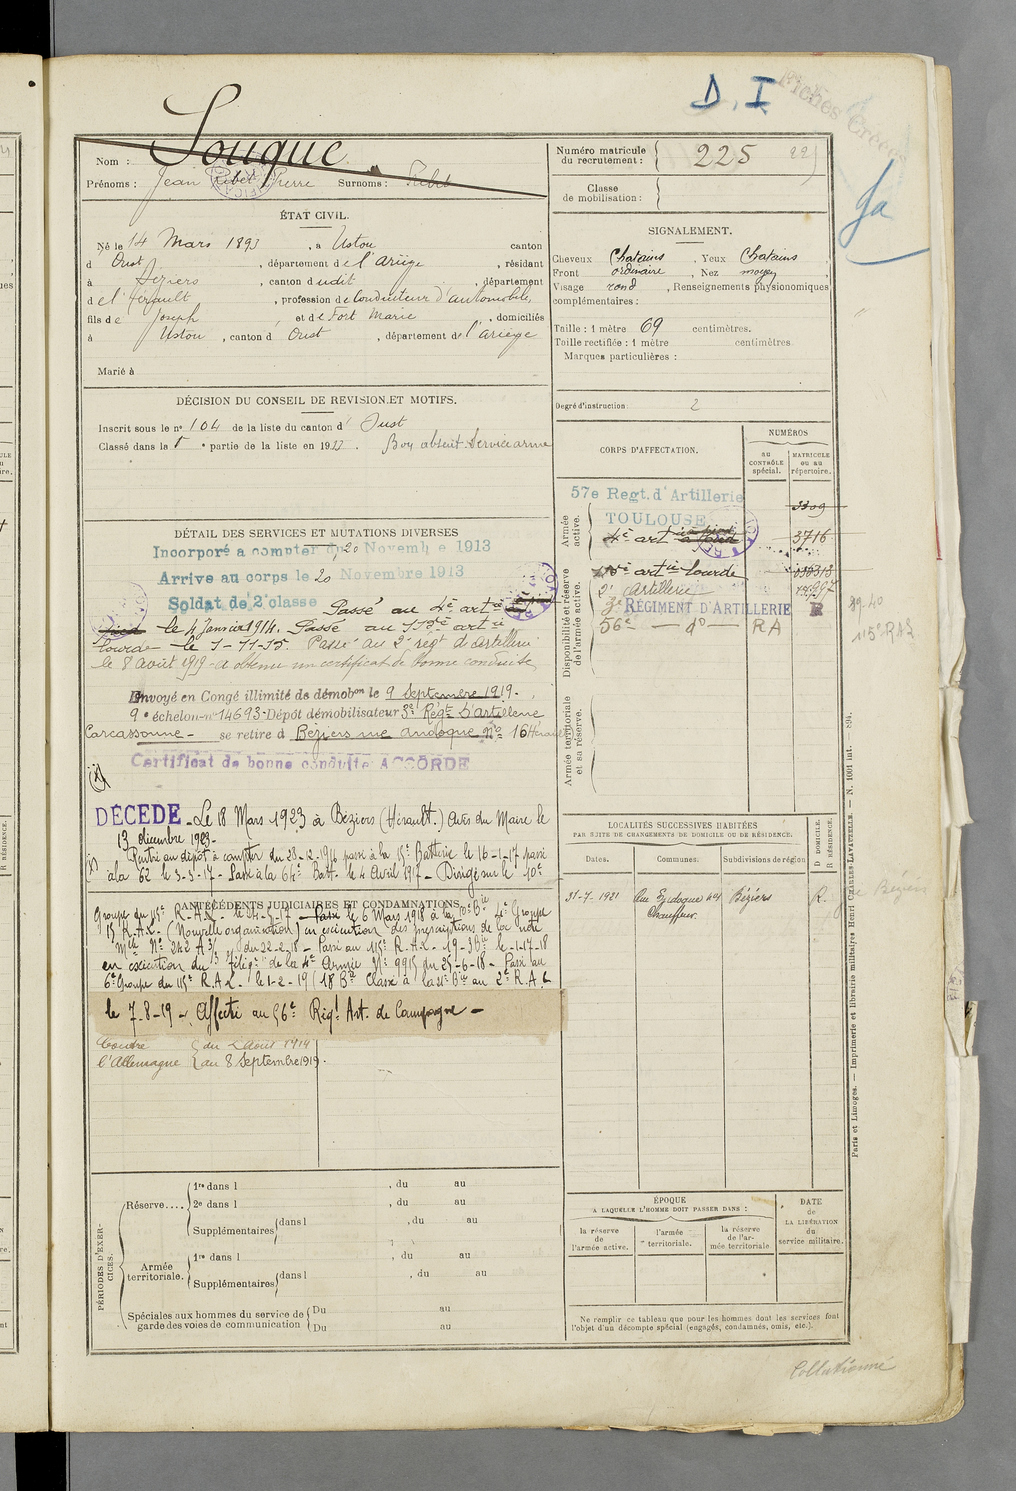 D.I
Fiches Créées
fa
Nom : Souque
Prénoms : Jean Ribet Pierre Surnoms : Ribet
Numéro matricule du recrutement : 225
Classe de mobilisation :
ÉTAT CIVIL.
Né le 14 Mars 1893, à Ustou canton
d'Oust, département de l'Ariège, résidant
à Béziers, canton dudit, département
de l'Hérault, profession de Conducteur d'automobile,
fils de Joseph et de Fort Marie, domiciliés
à Ustou, canton d'Oust, département de l'Ariège
Marié à
SIGNALEMENT.
Cheveux Chatains, Yeux Chatains
Front ordinaire, Nez moyen,
Visage rond, Renseignements physionomiques
complémentaires :
Taille : 1 mètre 69 centimètres.
Taille rectifiée : 1 mètre centimètres.
Marques particulières :
Degré d'instruction : 2
DÉCISION DU CONSEIL DE REVISION ET MOTIFS.
Inscrit sous le n° 104 de la liste du canton d'Oust
Classé dans la 1e partie de la liste en 1913. Bon absent Service armé
DÉTAIL DES SERVICES ET MUTATIONS DIVERSES
Incorporé a compter du 20 Novembre 1913
Arrive au corps le 20 Novembre 1913
Soldat de 2e classe Passé au 4e artie
le 4 Janvier 1914. Passé au 115e artie
lourde le 1-11-15. Passé au 2e régt d'artillerie
le 8 août 1919 - a obtenu un certificat de bonne conduite
Envoyé en Congé illimité de démobon le 9 Septembre 1919.
9e échelon n° 14693 - Dépôt démobilisateur 3e Régt d'artillerie
Carcassonne - se retire à Béziers rue Andoque No 16 Hérault
Certificat de bonne conduite ACCORDÉ
(x)
DÉCÉDÉ - Le 18 Mars 1923 à Béziers (Hérault.) Avis du Maire le
13 décembre 1923.
(x) Rentré au dépôt à compter du 23-12-1916 passé à la 15e Batterie le 16-1-17 passé
à la 62 le 3-3-17 - Passé à la 64e Batt. le 4 Avril 1917 - Dirigé sur le 10e
ANTÉCÉDENTS JUDICIAIRES ET CONDAMNATIONS
Groupe du 115e R.A.L. - Passé le 6 Mars 1918 à la 10e Bie 4e Groupe
R.A.L. (Nouvelle organisation) en exécution des prescriptions de la note
du 22-2-18 - Passé au 115e R.A.L.
en exécution du de la 4e Armée N° 9915 du 25-6-18 - Passé au
6e Groupe du 115e R.A.L. le 1-2-19 (18e Bie Classé à la Bie au 2e R.A.L
le 7-8-19 - Affecté au 56e Régt Art. de Campagne -
Contre du 2 Août 1914
l'Allemagne au 8 Septembre 1919.
CORPS D'AFFECTATION.
NUMÉROS
AU CONTRÔLE spécial.
MATRICULE OU AU répertoire.
Armée active.
57e Regt. d'Artillerie
TOULOUSE
3309
4e artie à pied
3716
Disponibilité et réserve de l'armée active.
artie lourde
2e Artillerie
3e RÉGIMENT D'ARTILLERIE R
56e — do — RA
115e RAL
Armée territoriale et sa réserve.
LOCALITÉS SUCCESSIVES HABITÉES
PAR SUITE DE CHANGEMENTS DE DOMICILE OU DE RÉSIDENCE.
Dates. Communes. Subdivisions de région D DOMICILE. R RÉSIDENCE.
31-7-1921 Béziers R.
Chauffeur.
PÉRIODES D'EXERCICES.
Réserve.... 1re dans l , du au
2e dans l , du au
Supplémentaires dans l , du au
Armée territoriale. 1re dans l , du au
Supplémentaires dans l , du au
Spéciales aux hommes du service de garde des voies de communication Du au
Du au
ÉPOQUE
A LAQUELLE L'HOMME DOIT PASSER DANS :
la réserve de l'armée active.
l'armée territoriale.
la réserve de l'armée territoriale
DATE DE LA LIBÉRATION du service militaire.
Ne remplir ce tableau que pour les hommes dont les services font
l'objet d'un décompte spécial (engagés, condamnés, omis, etc.).
Paris et Limoges. — Imprimerie et librairie militaires Henri CHARLES-LAVAUZELLE. — N. 1001 int. — 894.
Collationné